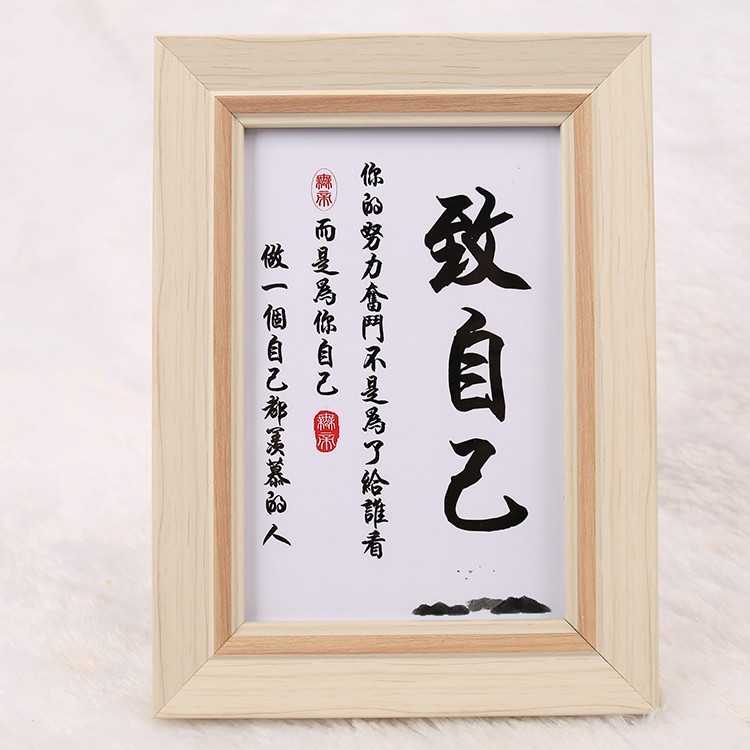 致自己
你的努力奮鬥不是為了給誰看
而是為你自己
做一個自己都羨慕的人